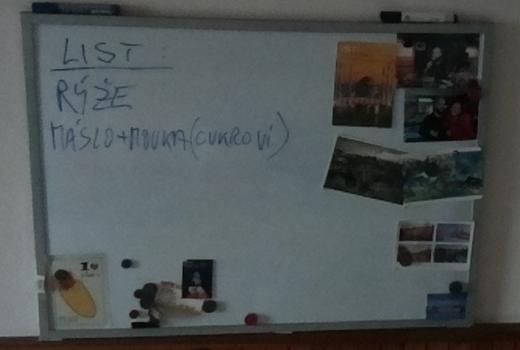 LIST
RÝŽE
MÁSLO+MOUKA(CUKROVÍ)